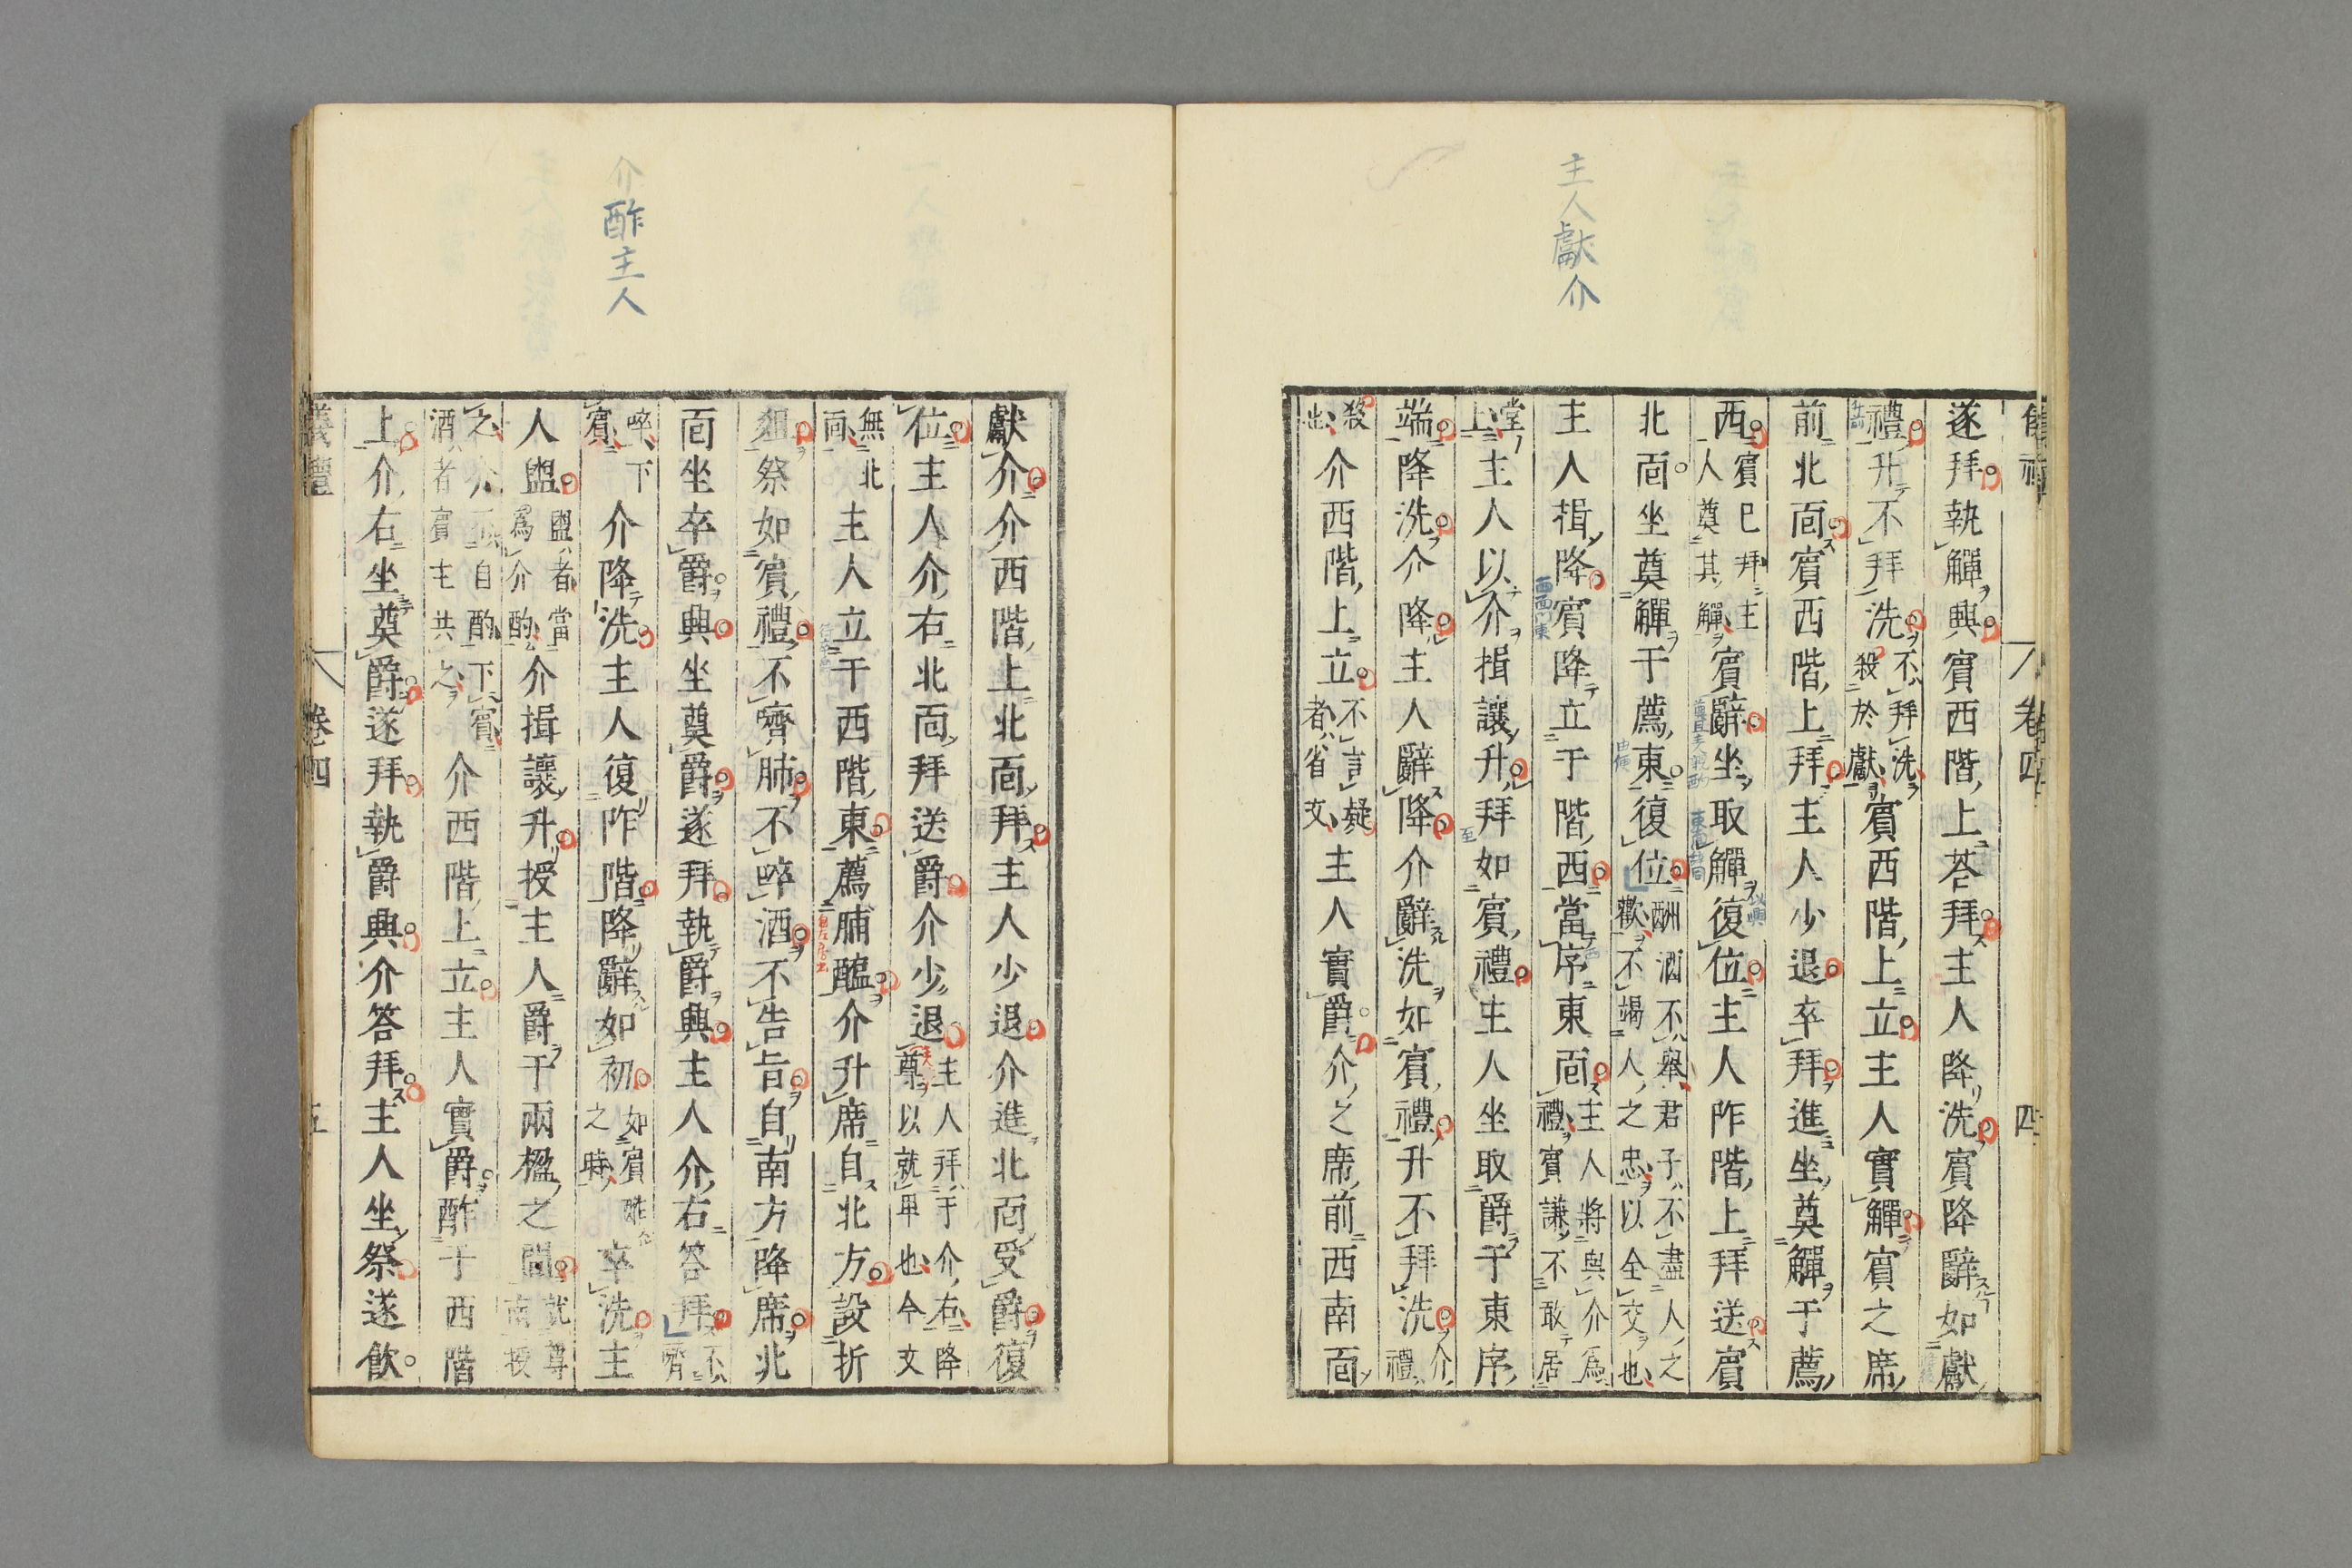 主人獻介
遂拜執觶興賓西階上荅拜主人降洗賓降辭如獻
禮升不拜洗不拜洗殺於獻賓西階上立主人實觶賓之席
前北面賓西階上拜主人少退卒拜進坐奠觶于薦
西賓已拜主人奠其觶賓辭坐取觶復位主人阼階上拜送賓
北面坐奠觶于薦東復位酬酒不舉君子不盡人之歡不竭人之忠以全交也
主人揖降賓降立于階西當序東面主人將與介爲禮賓謙不敢居
堂上主人以介揖讓升拜如賓禮主人坐取爵于東序
端降洗介降主人辭降介辭洗如賓禮升不拜洗介禮
殺也介西階上立不言疑者省文主人實爵介之席前西南面
介酢主人
獻介介西階上北面拜主人少退介進北面受爵復
位主人介右北面拜送爵介少退主人拜于介右降尊以就卑也今文
無北面主人立于西階東薦脯醢介升席自北方設折
俎祭如賓禮不嚌肺不啐酒不告旨自南方降席北
面坐卒爵興坐奠爵遂拜執爵興主人介右荅拜不嚌
啐下賓介降洗主人復阼階降辭如初如賓酢之時卒洗主
人盥盥者當爲介酌介揖讓升授主人爵于兩楹之間就尊南授
之介不自酌下賓酒者賓主共之介西階上立主人實爵酢于西階
上介右坐奠爵遂拜執爵興介荅拜主人坐祭遂飲
儀禮 卷四 五